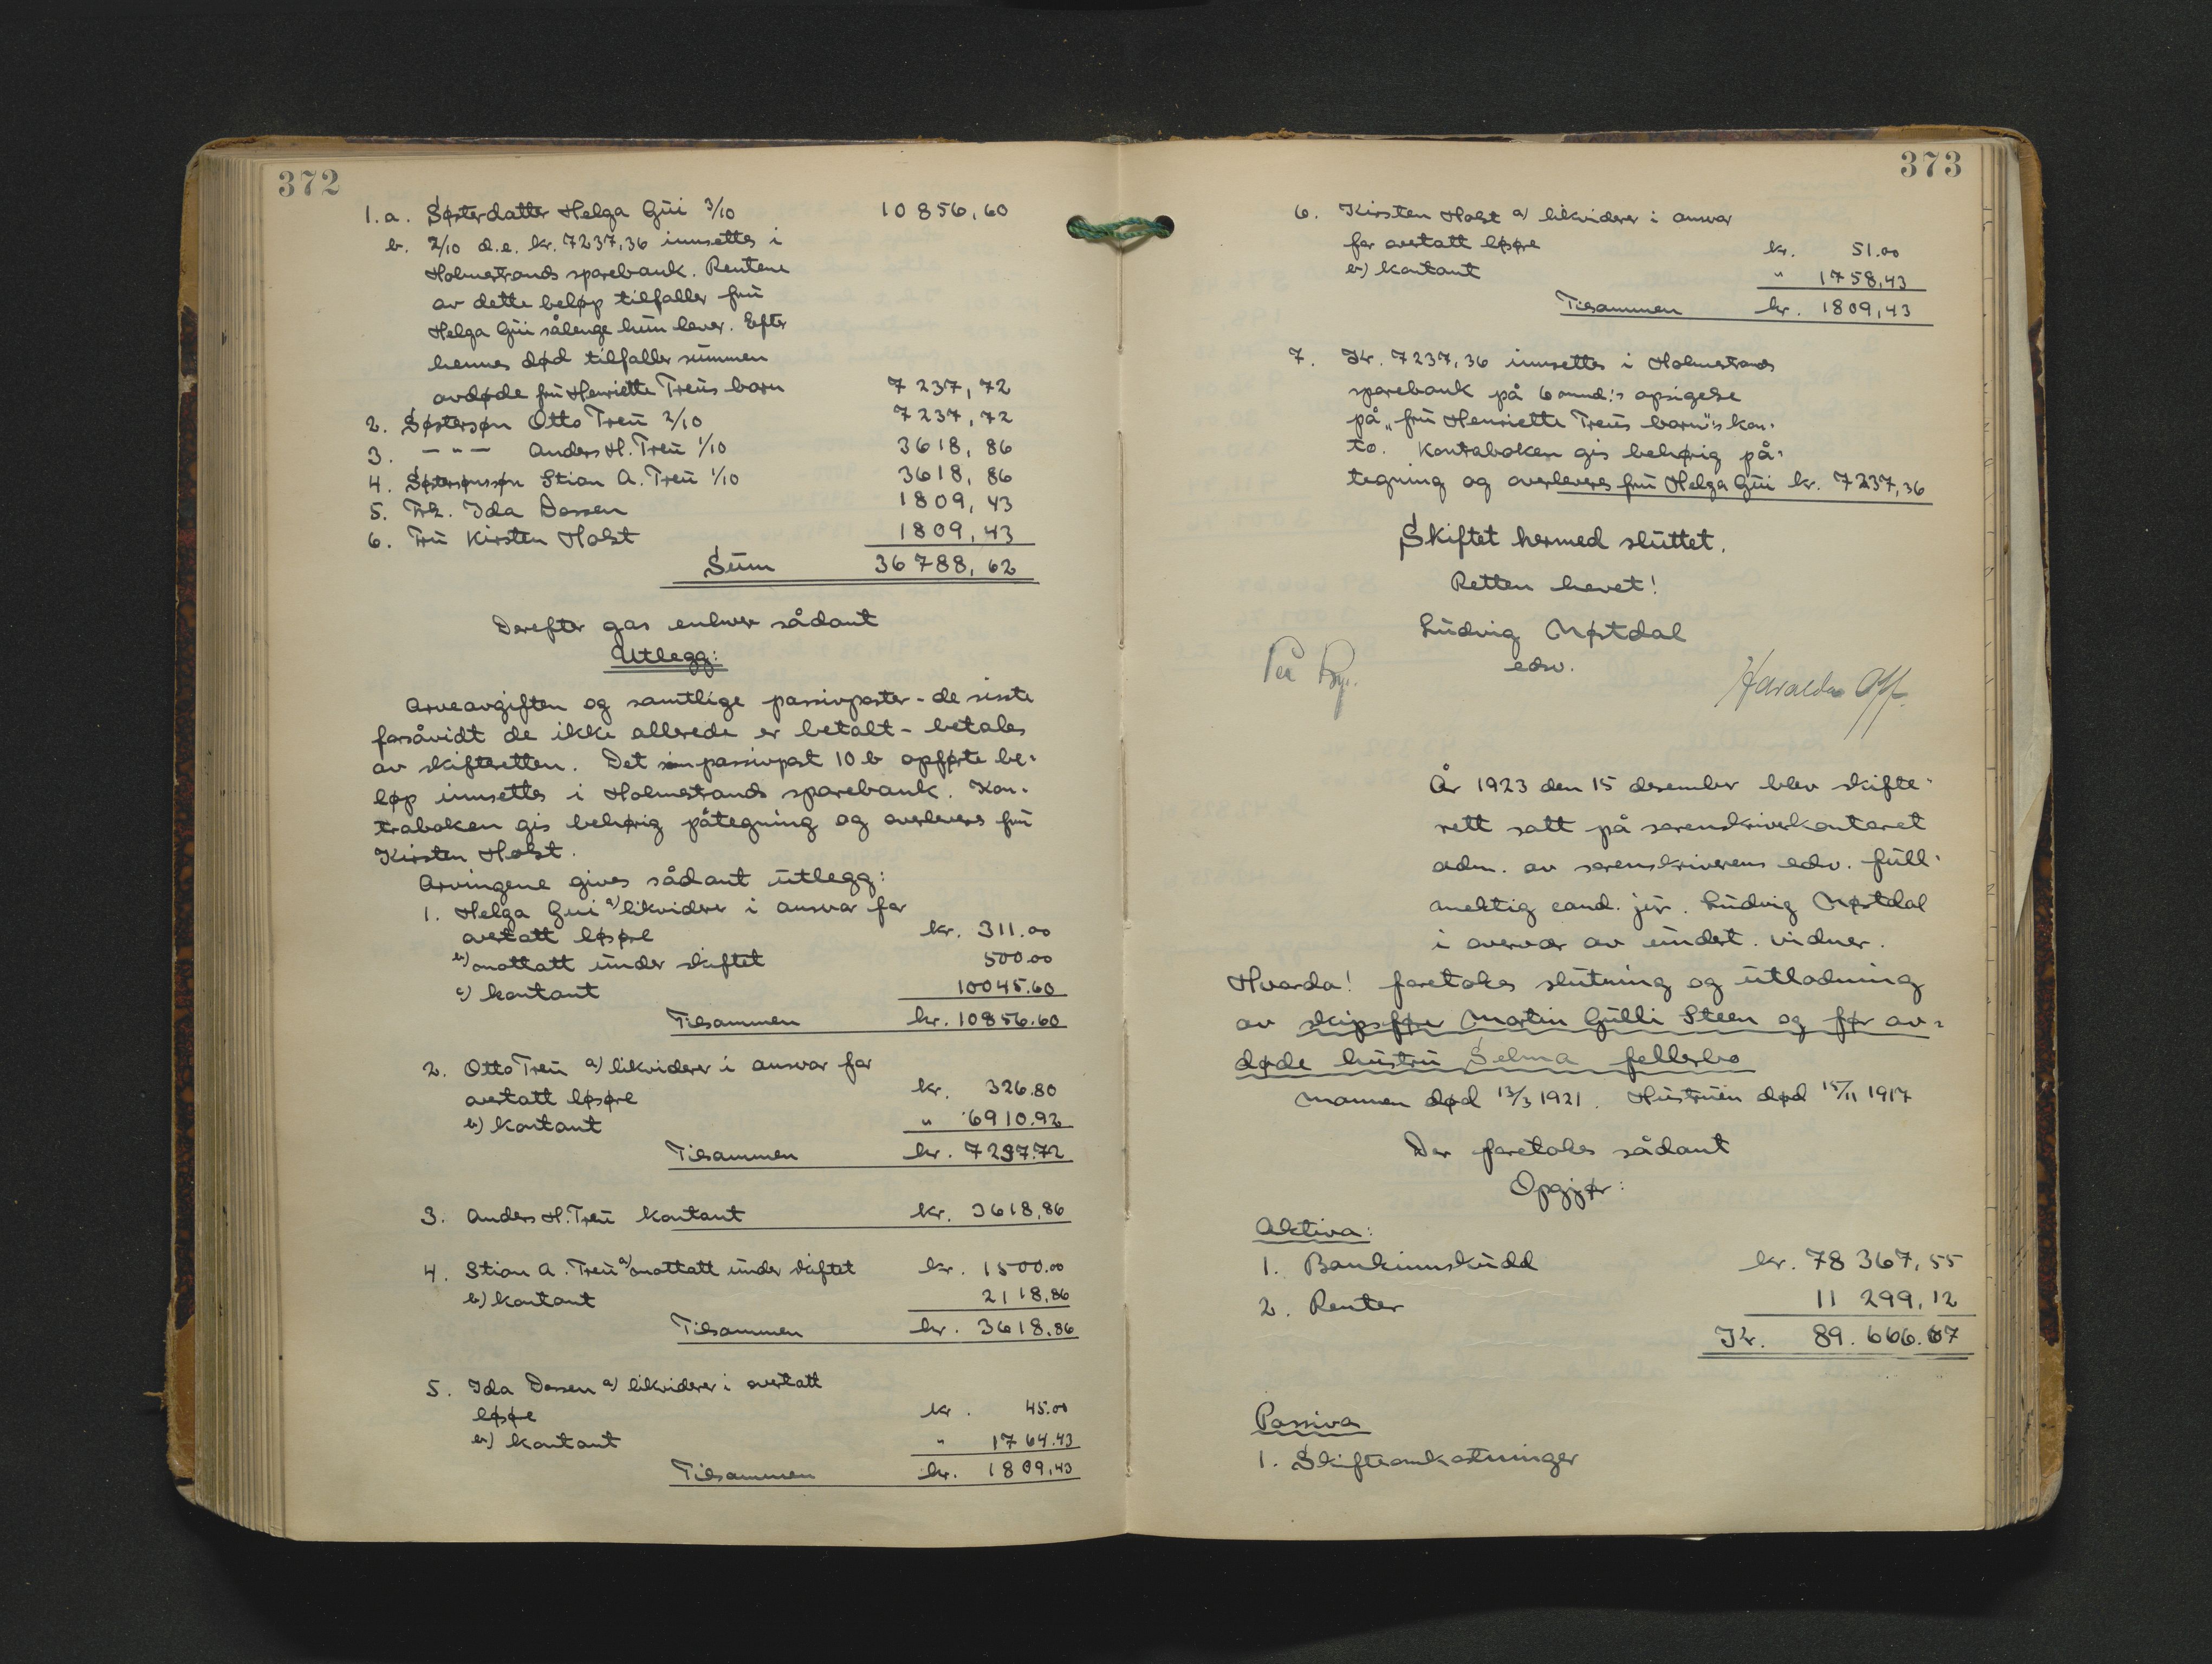 372
1.a. Søsterdatter Helga Gui 3/10 10856,60
b. 2/10 d.e. kr. 7237,36 innsettes i
Holmestrands sparebank. Rentene
av dette beløp tilfaller fru
Helga Gui sålenge hun lever. Efter
hennes død tilfaller summen
avdøde fru Henriette Treus barn 7237,72
2. Søstersøn Otto Treu 2/10 7237,72
3. – " – Anders H. Treu 1/10 3618,86
4. Søstersønssøn Stian A. Treu 1/10 3618,86
5. Frk. Ida Dossen 1809,43
6. Fru Kirsten Holst 1809,43
Sum 36788,62
Derefter gas enhver sådant
Utlegg:
Arveavgiften og samtlige passivposter - de siste
forsåvidt de ikke allerede er betalt - betales
av skifteretten. Det i passivpost 10 b opførte be-
løp innsettes i Holmestrands sparebank. Kon-
traboken gis behørig påtegning og overleveres fru
Kirsten Holst.
Arvingene gives sådant utlegg:
1. Helga Gui a) likviderer i ansvar for
overtatt løsøre kr. 311.00
b) mottatt under skiftet 500.00
c) kontant 10045.60
Tilsammen kr. 10856.60
2. Otto Treu a) likviderer i ansvar for
overtatt løsøre kr. 326.80
b) kontant " 6910.92
Tilsammen kr. 7237.72
3. Anders H. Treu kontant kr. 3618,86
4. Stian A. Treu a) mottatt under skiftet kr. 1500.00
b) kontant 2118,86
Tilsammen kr. 3618.86
5. Ida Dossen a) likviderer i overtatt
løsøre kr. 45.00
b) kontant " 1764.43
Tilsammen kr. 1809,43
373
6. Kirsten Holst a) likviderer i ansvar
for overtatt løsøre kr. 51.00
b) kontant " 1758,43
Tilsammen kr. 1809,43
7. Kr. 7237,36 innsettes i Holmestrands
sparebank på 6 mnd.'s opsigelse
på "fru Henriette Treus barn"'s kon-
to. Kontraboken gis behørig på-
tegning og overleveres fru Helga Gui kr. 7237,36
Skiftet hermed sluttet.
Retten hevet!
Ludvig Møstdal
edsv.
År 1923 den 15 desember blev skifte-
rett satt på sorenskriverkontoret
adm. av sorenskriverens edsv. full-
mektig cand. jur. Ludvig Møstdal
i overvær av undert. vidner.
Hvorda! foretokes slutning og utlodning
av skipsfører Martin Gulli Steen og før av-
døde hustru Selma fellesbo
Mannen død 13/3 1921. Hustruen død 15/11 1917
Der foretokes sådant
Opgjør:
Aktiva:
1. Bankinnskudd kr. 78367,55
2. Renter 11299,12
Kr. 89.666.67
Passiva
1. Skifteomkostninger